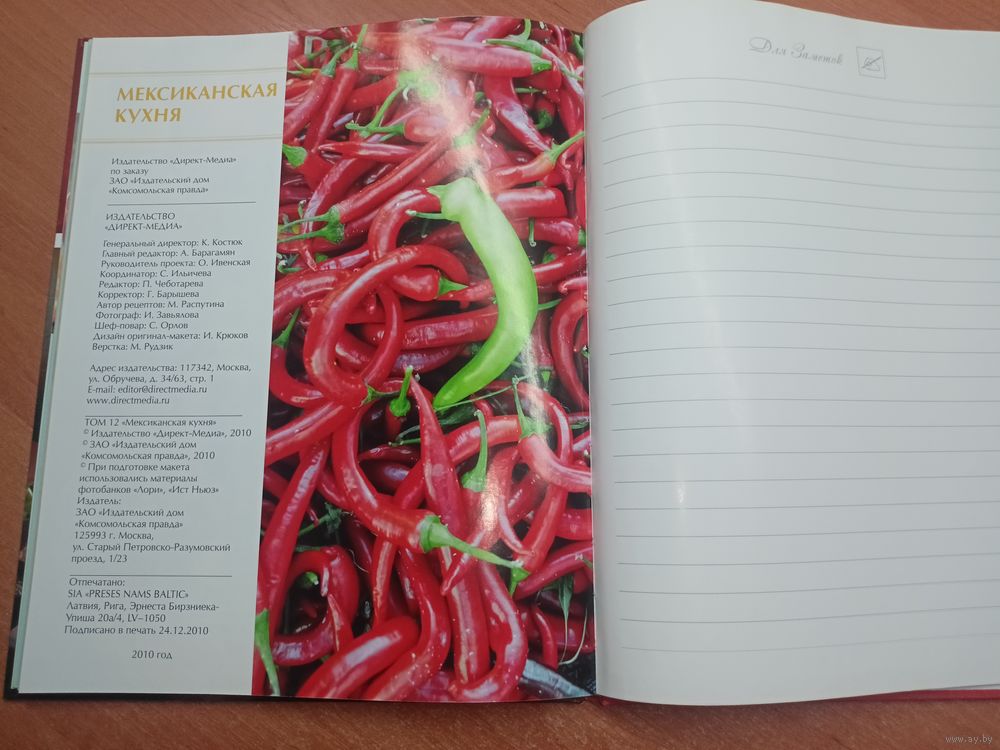 МЕКСИКАНСКАЯ
КУХНЯ
Издательство «Директ-Медиа»
по заказу
ЗАО «Издательский дом
«Комсомольская правда»
ИЗДАТЕЛЬСТВО
«ДИРЕКТ-МЕДИА»
Генеральный директор: К. Костюк
Главный редактор: А. Барагамян
Руководитель проекта: О. Ивенская
Координатор: С. Ильичева
Редактор: П. Чеботарева
Корректор: Г. Барышева
Автор рецептов: М. Распутина
Фотограф: И. Завьялова
Шеф-повар: С. Орлов
Дизайн оригинал-макета: И. Крюков
Верстка: М. Рудзик
Адрес издательства: 117342, Москва,
ул. Обручева, д. 34/63, стр. 1
E-mail: editor@directmedia.ru
www.directmedia.ru
ТОМ 12 «Мексиканская кухня»
© Издательство «Директ-Медиа», 2010
© ЗАО «Издательский дом
«Комсомольская правда», 2010
© При подготовке макета
использовались материалы
фотобанков «Лори», «Ист Ньюз»
Издатель:
ЗАО «Издательский дом
«Комсомольская правда»
125993 г. Москва,
ул. Старый Петровско-Разумовский
проезд, 1/23
Отпечатано:
SIA «PRESES NAMS BALTIC»
Латвия, Рига, Эрнеста Бирзниека-
Упиша 20а/4, LV–1050
Подписано в печать 24.12.2010
2010 год
Для Заметок
www.ay.by